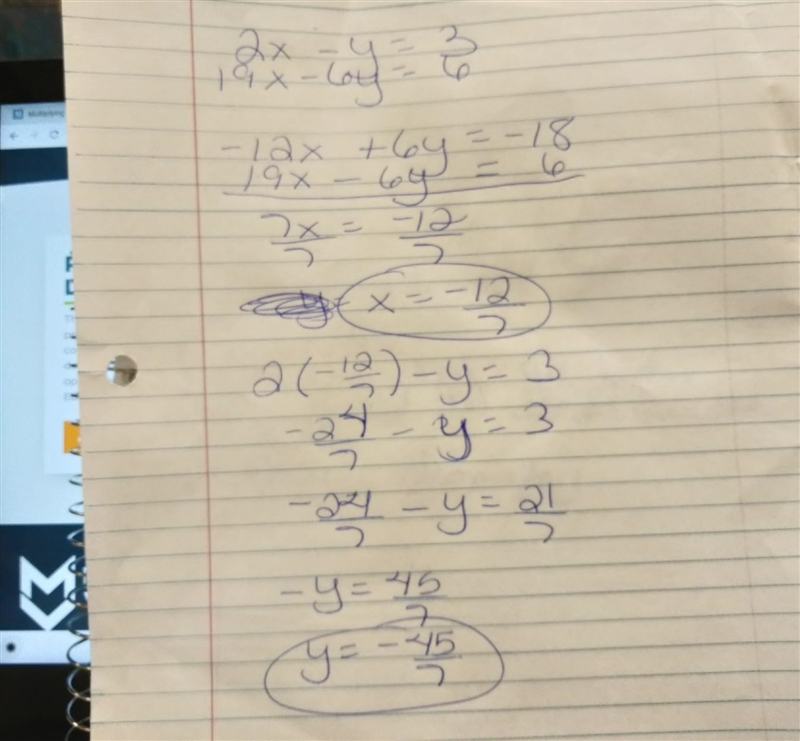 Multiplying
2x - y = 3
19x - 6y = 6
-12x + 6y = -18
19x - 6y = 6
7x/7 = -12/7
x = -12/7
2(-12/7) - y = 3
-24/7 - y = 3
-24/7 - y = 21/7
-y = 45/7
y = -45/7